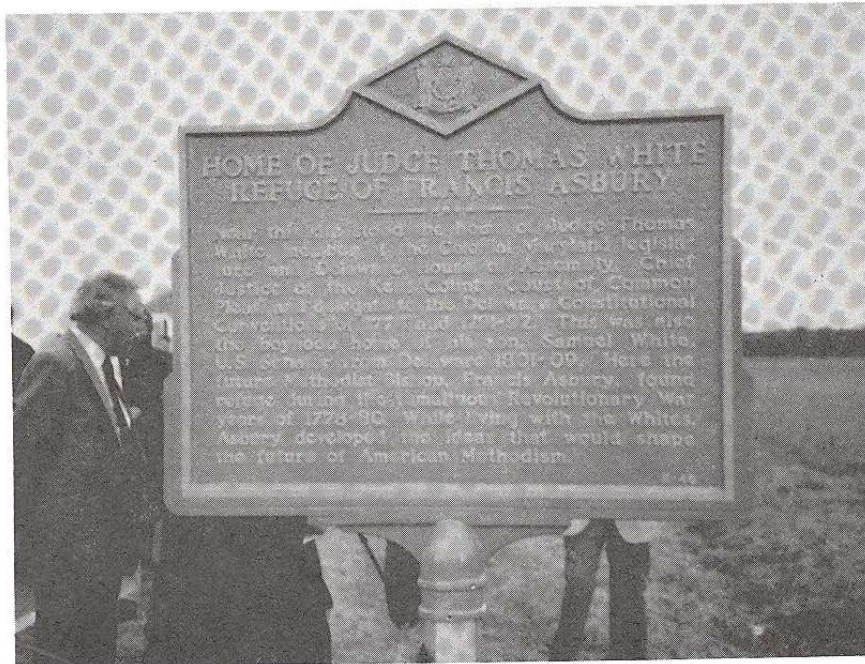 HOME OF JUDGE THOMAS WHITE
REFUGE OF FRANCIS ASBURY
Near this site stood the home of Judge Thomas
White, member of the Colonial Maryland legisla-
ture and Delaware House of Assembly, Chief
Justice of the Kent County Court of Common
Pleas and delegate to the Delaware Constitutional
Conventions of 1776 and 1791-92. This was also
the boyhood home of his son, Samuel White,
U.S. senator from Delaware 1801-09. Here the
future Methodist Bishop, Francis Asbury, found
refuge during the tumultuous Revolutionary War
years of 1778-80. While living with the Whites,
Asbury developed the ideas that would shape
the future of American Methodism.